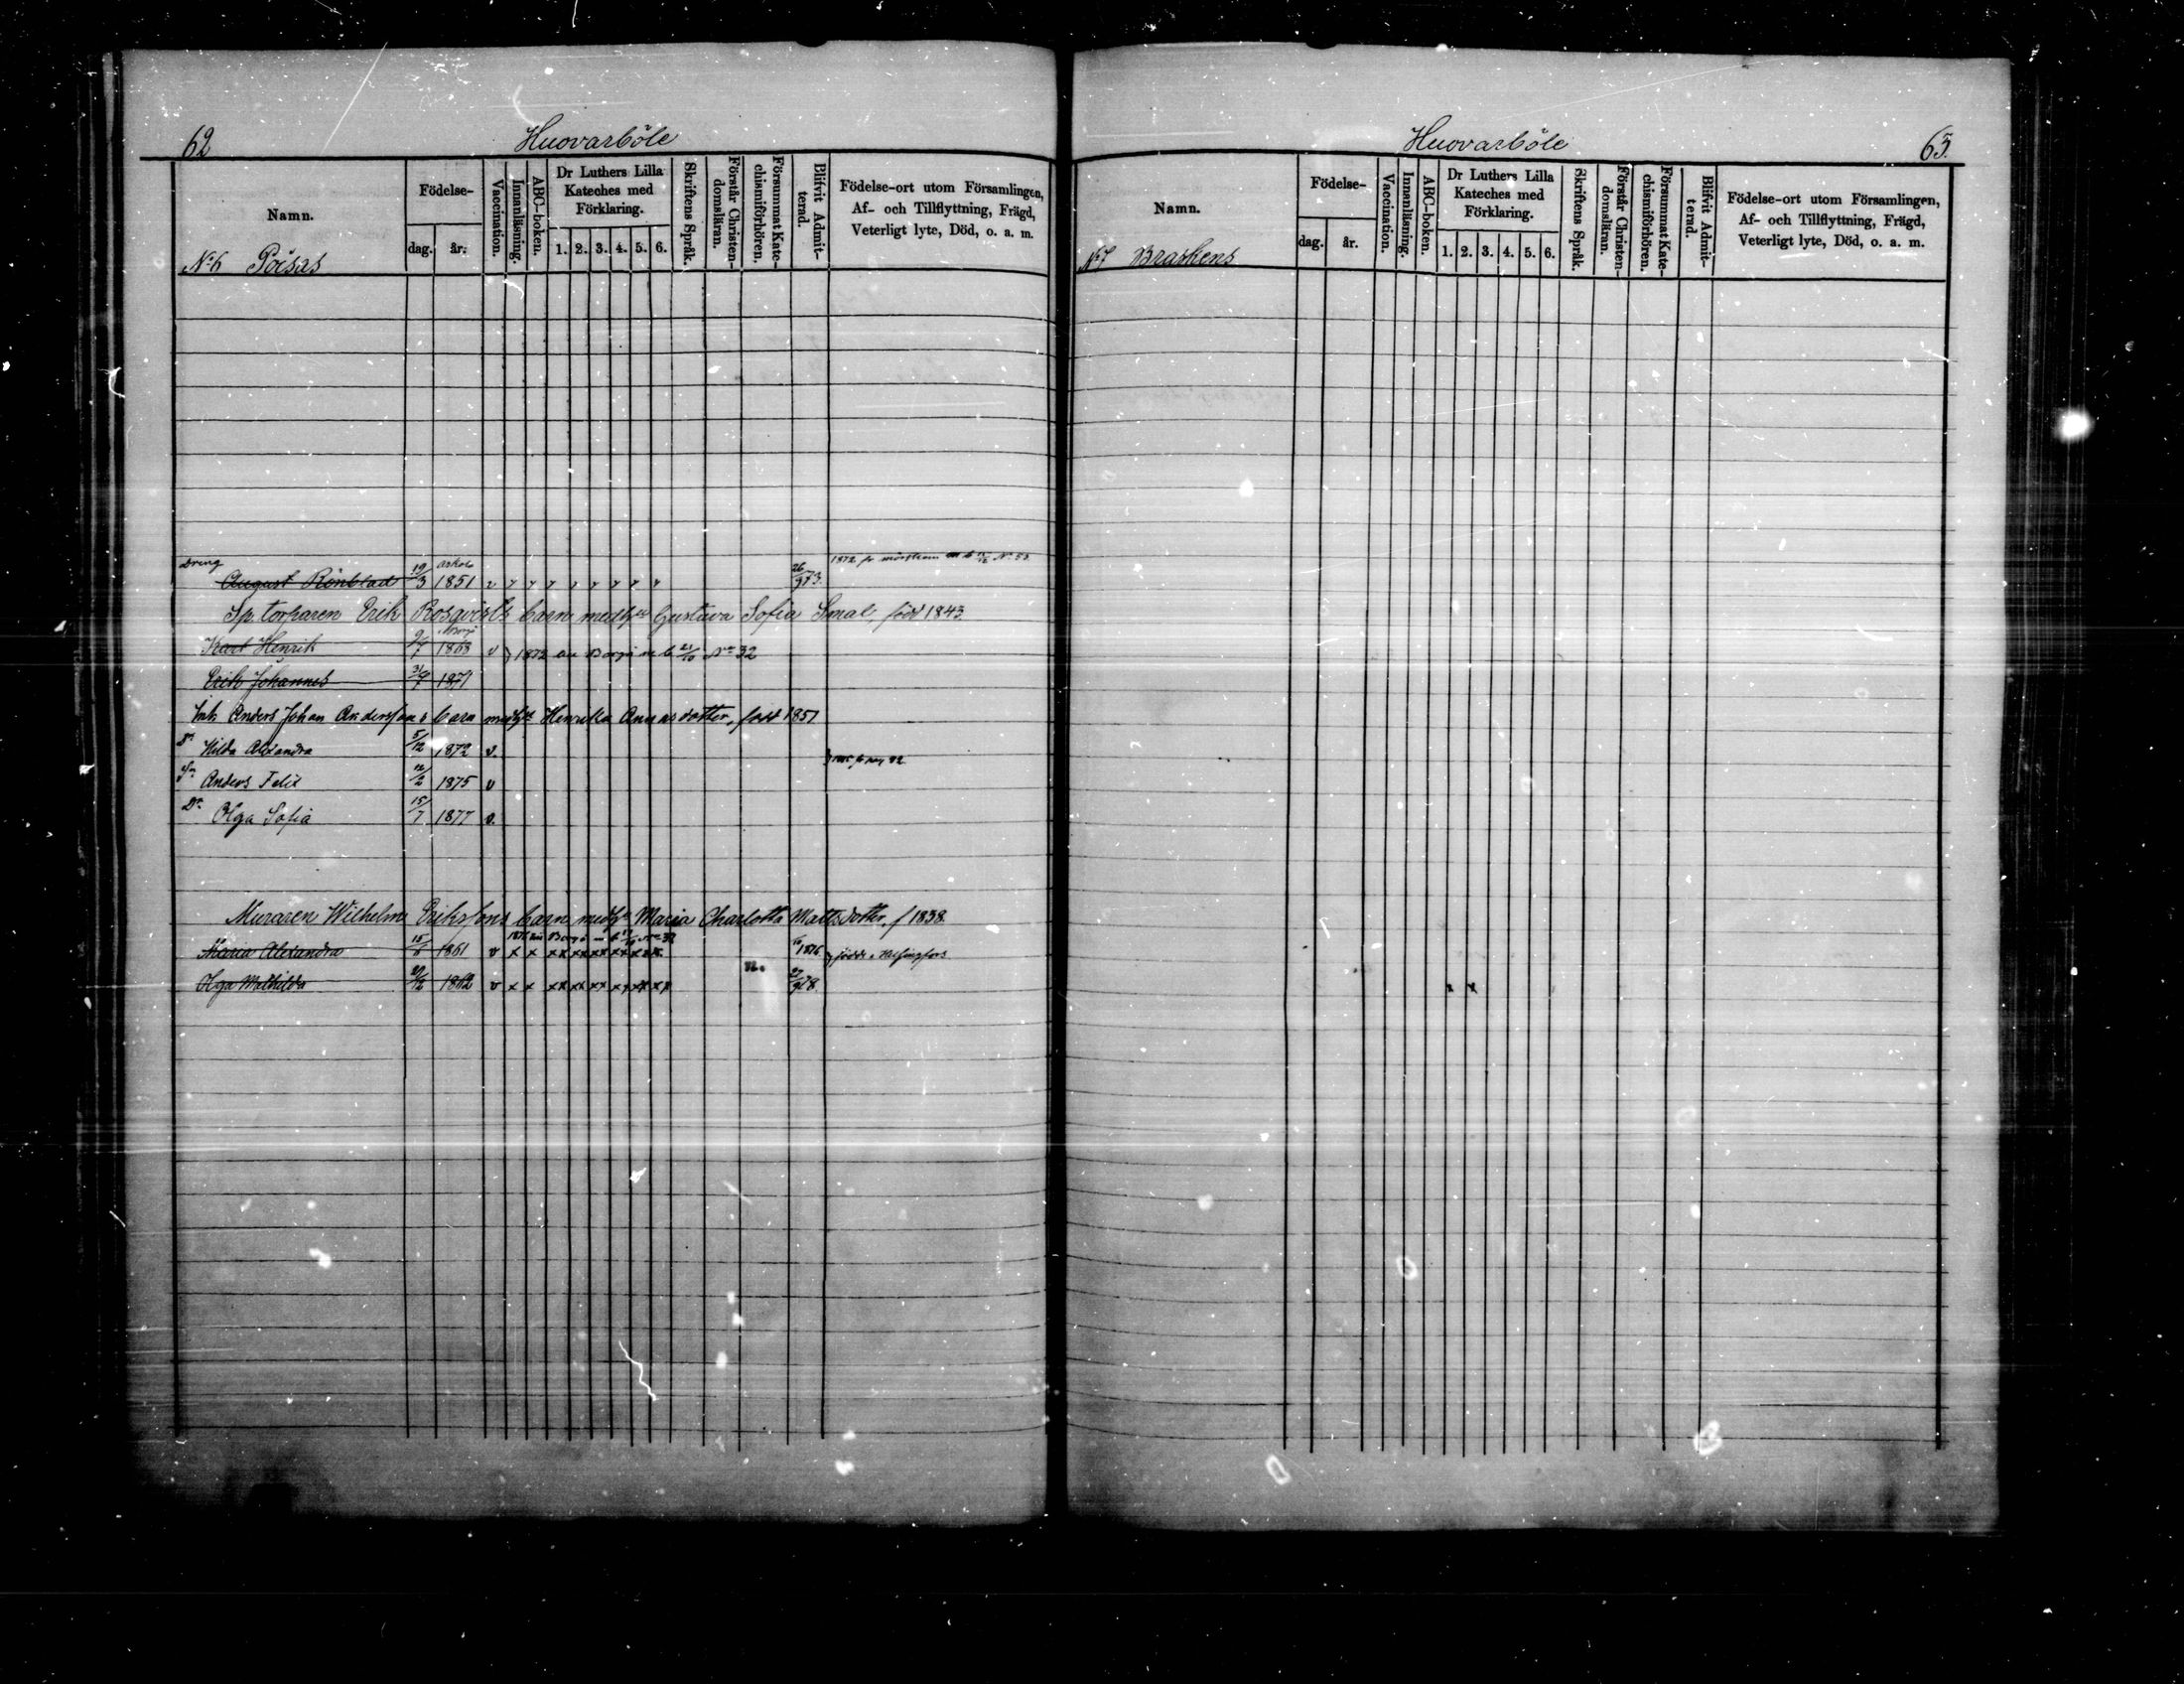 62
Huovarböle
Namn.
Födelse-
dag.
år.
Vaccination.
Innanläsning.
ABC-boken.
Dr Luthers Lilla Kateches med Förklaring.
1. 2. 3. 4. 5. 6.
Skriftens Språk.
Förstår Christen-domsläran.
Försummat Kate-chismiförhören.
Blifvit Admit-terad.
Födelse-ort utom Församlingen,
Af- och Tillflyttning, Frägd,
Veterligt lyte, Död, o. a. m.
No 6 Poisas
Dreng Askola 1872 fr N:o 53
August Rönblad 19/3 1851 26/5 73.
Sp. torparen Erik Rosqvists barn med h:u Gustava Sofia Smal, född 1843.
Borgå
Karl Henrik 1868 v 1872 Borgå m b 21/10 No 32
Erik Johannes 31/7 1871
Inh. Anders Johan Anderssons barn med h:u Henrika Annasdotter, född 1851
Dr Hilda Alexandra 5/12 1872 v.
Sn Anders Felix 12/2 1875 v
Dr Olga Sofia 15/7 1877 v.
Muraren Wilhelm Erikssons barn med h:u Maria Charlotta Mattsdotter, f 1838.
Maria Alexandra 15/6 1861 v x x xx xx xx xx xx xx 1876 födde i Helsingfors
Olga Mathilda 1862 v x x xx xx xx xx xx xx 78.
Huovarböle
63.
Namn.
Födelse-
dag.
år.
Vaccination.
Innanläsning.
ABC-boken.
Dr Luthers Lilla Kateches med Förklaring.
1. 2. 3. 4. 5. 6.
Skriftens Språk.
Förstår Christen-domsläran.
Försummat Kate-chismiförhören.
Blifvit Admit-terad.
Födelse-ort utom Församlingen,
Af- och Tillflyttning, Frägd,
Veterligt lyte, Död, o. a. m.
No 7 Braskens